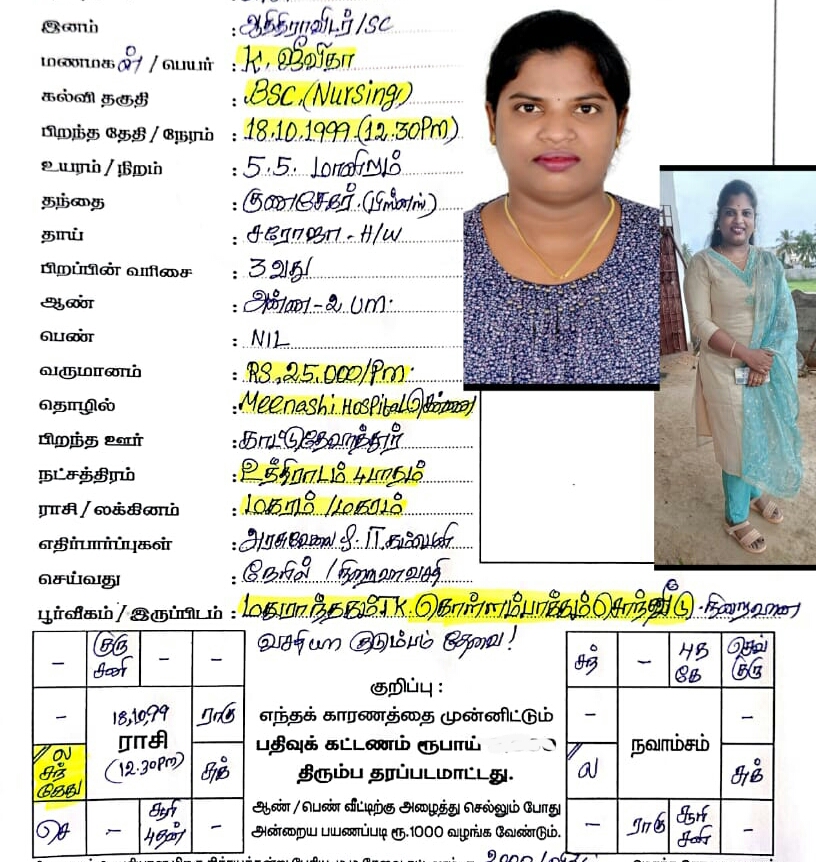 இனம் : ஆதிதிராவிடர்/SC
மணமகள் / பெயர் : K. ஜீவிதா
கல்வி தகுதி : BSC.(Nursing)
பிறந்த தேதி / நேரம் : 18.10.1999 (12.30Pm)
உயரம் / நிறம் : 5.5. மாநிறம்
தந்தை : குணசேகர்.(பிஸ்னஸ்)
தாய் : சரோஜா - H/W
பிறப்பின் வரிசை : 3வது
ஆண் : அண்ண-2 UM.
பெண் : NIL
வருமானம் : RS.25.000/Pm.
தொழில் : Meenashi HOSPital சென்னை
பிறந்த ஊர் :
நட்சத்திரம் : உத்திராடம் 4பாதம்
ராசி / லக்கினம் : மகரம் /மகரம்
எதிர்பார்ப்புகள் : அரசுவேலை & IT கம்பெனி
செய்வது :
பூர்வீகம் / இருப்பிடம் : சொந்தவீடு. நிறைவான
வசதியான குடும்பம் தேவை!
– குரு சனி – –
– ராகு
ல சந் கேது சுக்
செ – சூரி புதன் –
18,10,99
ராசி
(12.30PM)
குறிப்பு :
எந்தக் காரணத்தை முன்னிட்டும்
பதிவுக் கட்டணம் ரூபாய்
திரும்ப தரப்படமாட்டாது.
ஆண் / பெண் வீட்டிற்கு அழைத்து செல்லும் போது
அன்றைய பயணப்படி ரூ.1000 வழங்க வேண்டும்.
சந் – புத கே செவ் குரு
– –
ல சுக்
– ராகு சூரி சனி –
நவாம்சம்